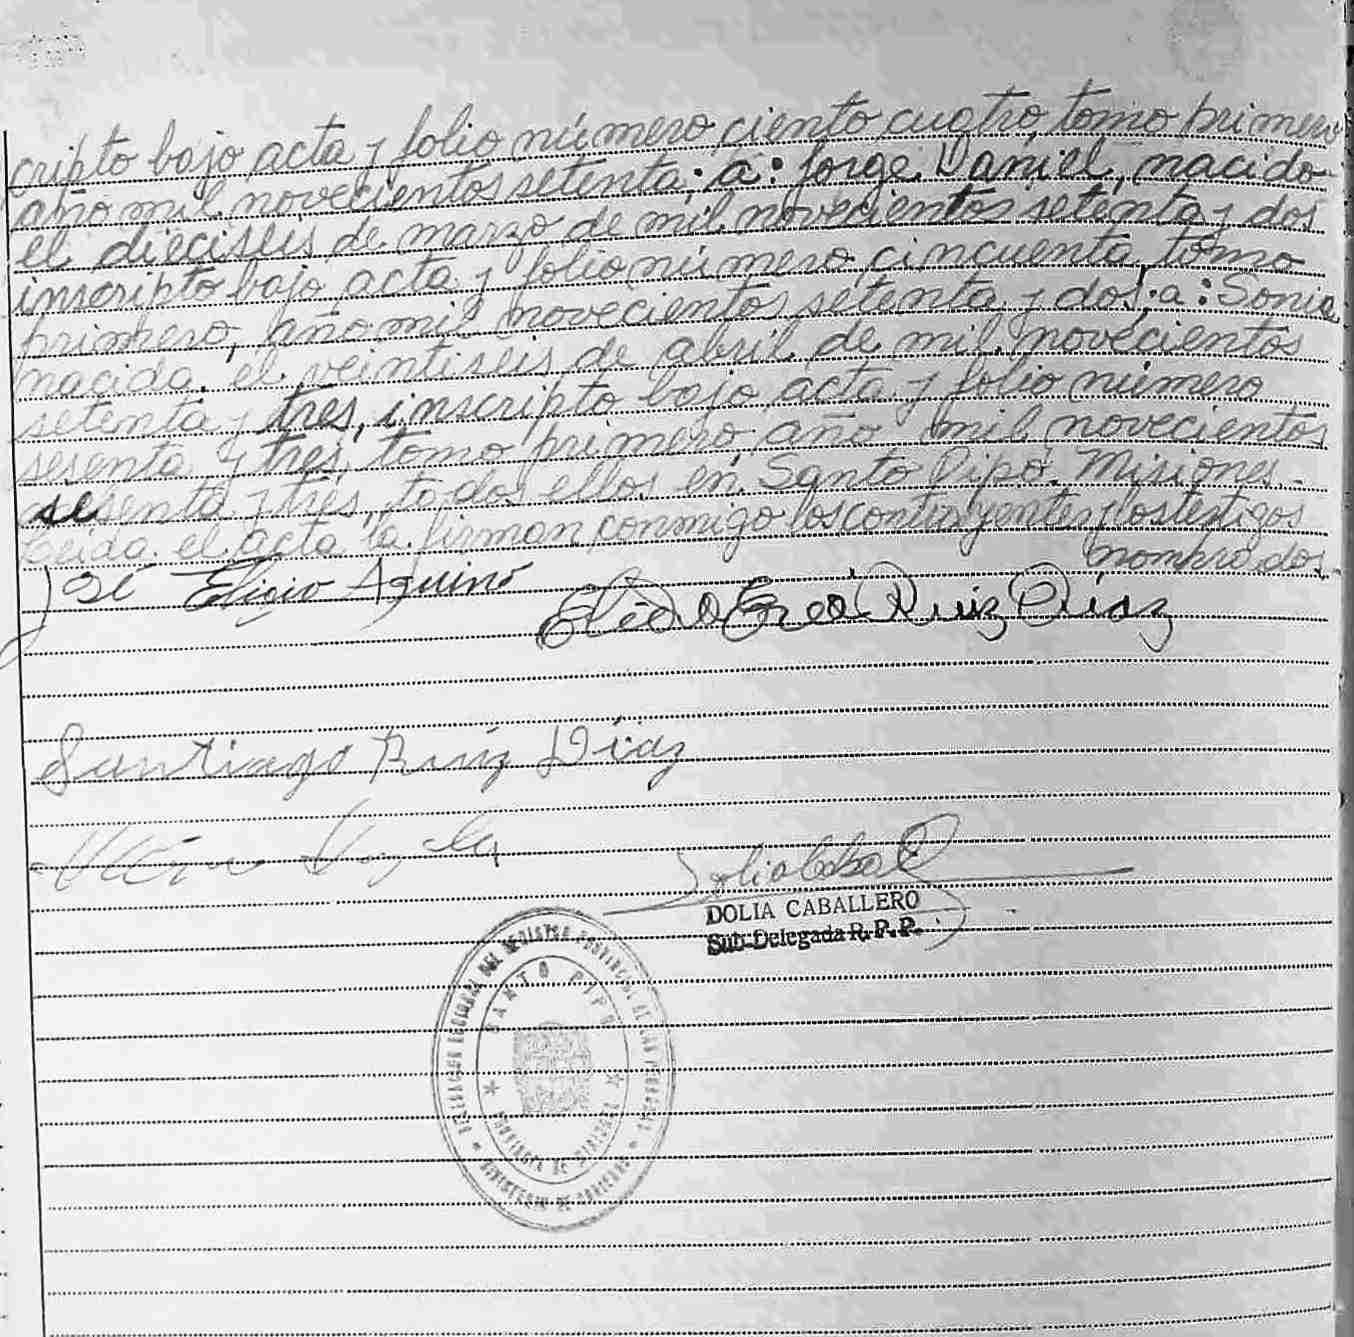 cripto bajo acta y folio número ciento cuatro, tomo primero
año mil novecientos setenta; a: Jorge Daniel, nacido
el dieciseis de marzo de mil novecientos setenta y dos
inscripto bajo acta y folio número cincuenta, tomo
primero, año mil novecientos setenta y dos; a: Sonia
nacida el veintiseis de abril de mil novecientos
setenta y tres, inscripto bajo acta y folio número
sesenta y tres, tomo primero, año mil novecientos
sesenta y tres, todos ellos en Santo Pipó. Misiones.
Leida el acta la firman conmigo los contrayentes y los testigos
nombrados.
José Eligio Aquino
Ruiz Diaz
Santiago Ruiz Diaz
DOLIA CABALLERO
Sub-Delegada R. P. P.
DELEGACION REGIONAL DEL REGISTRO PROVINCIAL DE LAS PERSONAS
SANTO PIPO
PROVINCIA DE MISIONES
MINISTERIO DE GOBIERNO